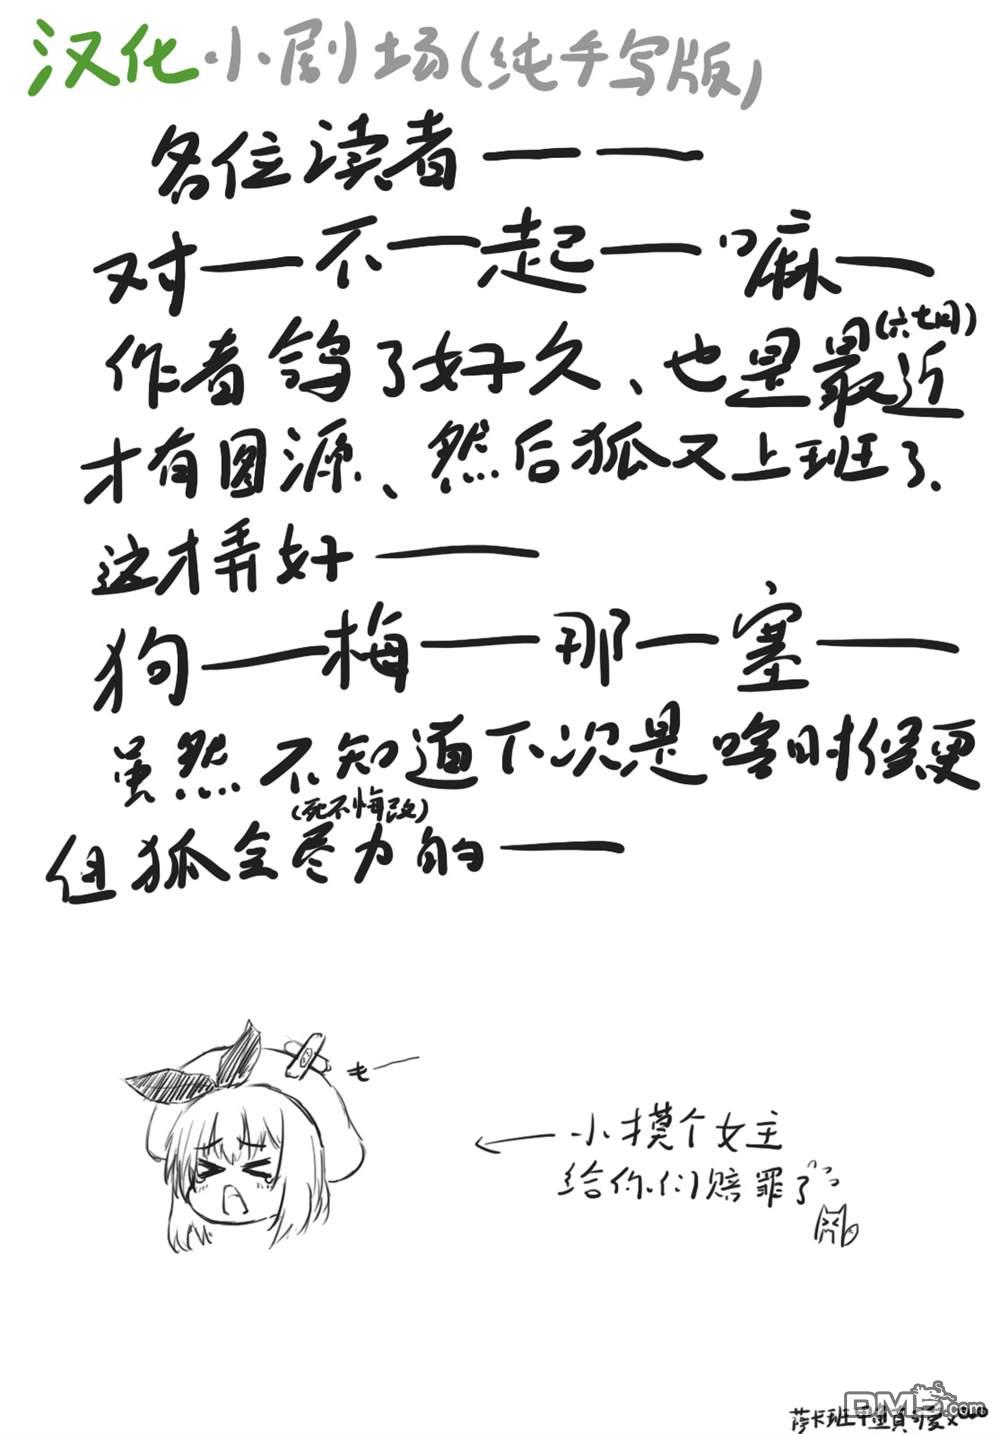 汉化小剧场(纯手写版)
各位读者——
对—不—起—嘛—
作者鸽了好久、也是最近(六七月)
才有图源、然后狐又上班了.
这才弄好——
狗—梅—那—塞—
虽然不知道下次是啥时候更
但狐会尽力的—
(死不悔改)
←小摸个女主
给你们赔罪了
DM5.com